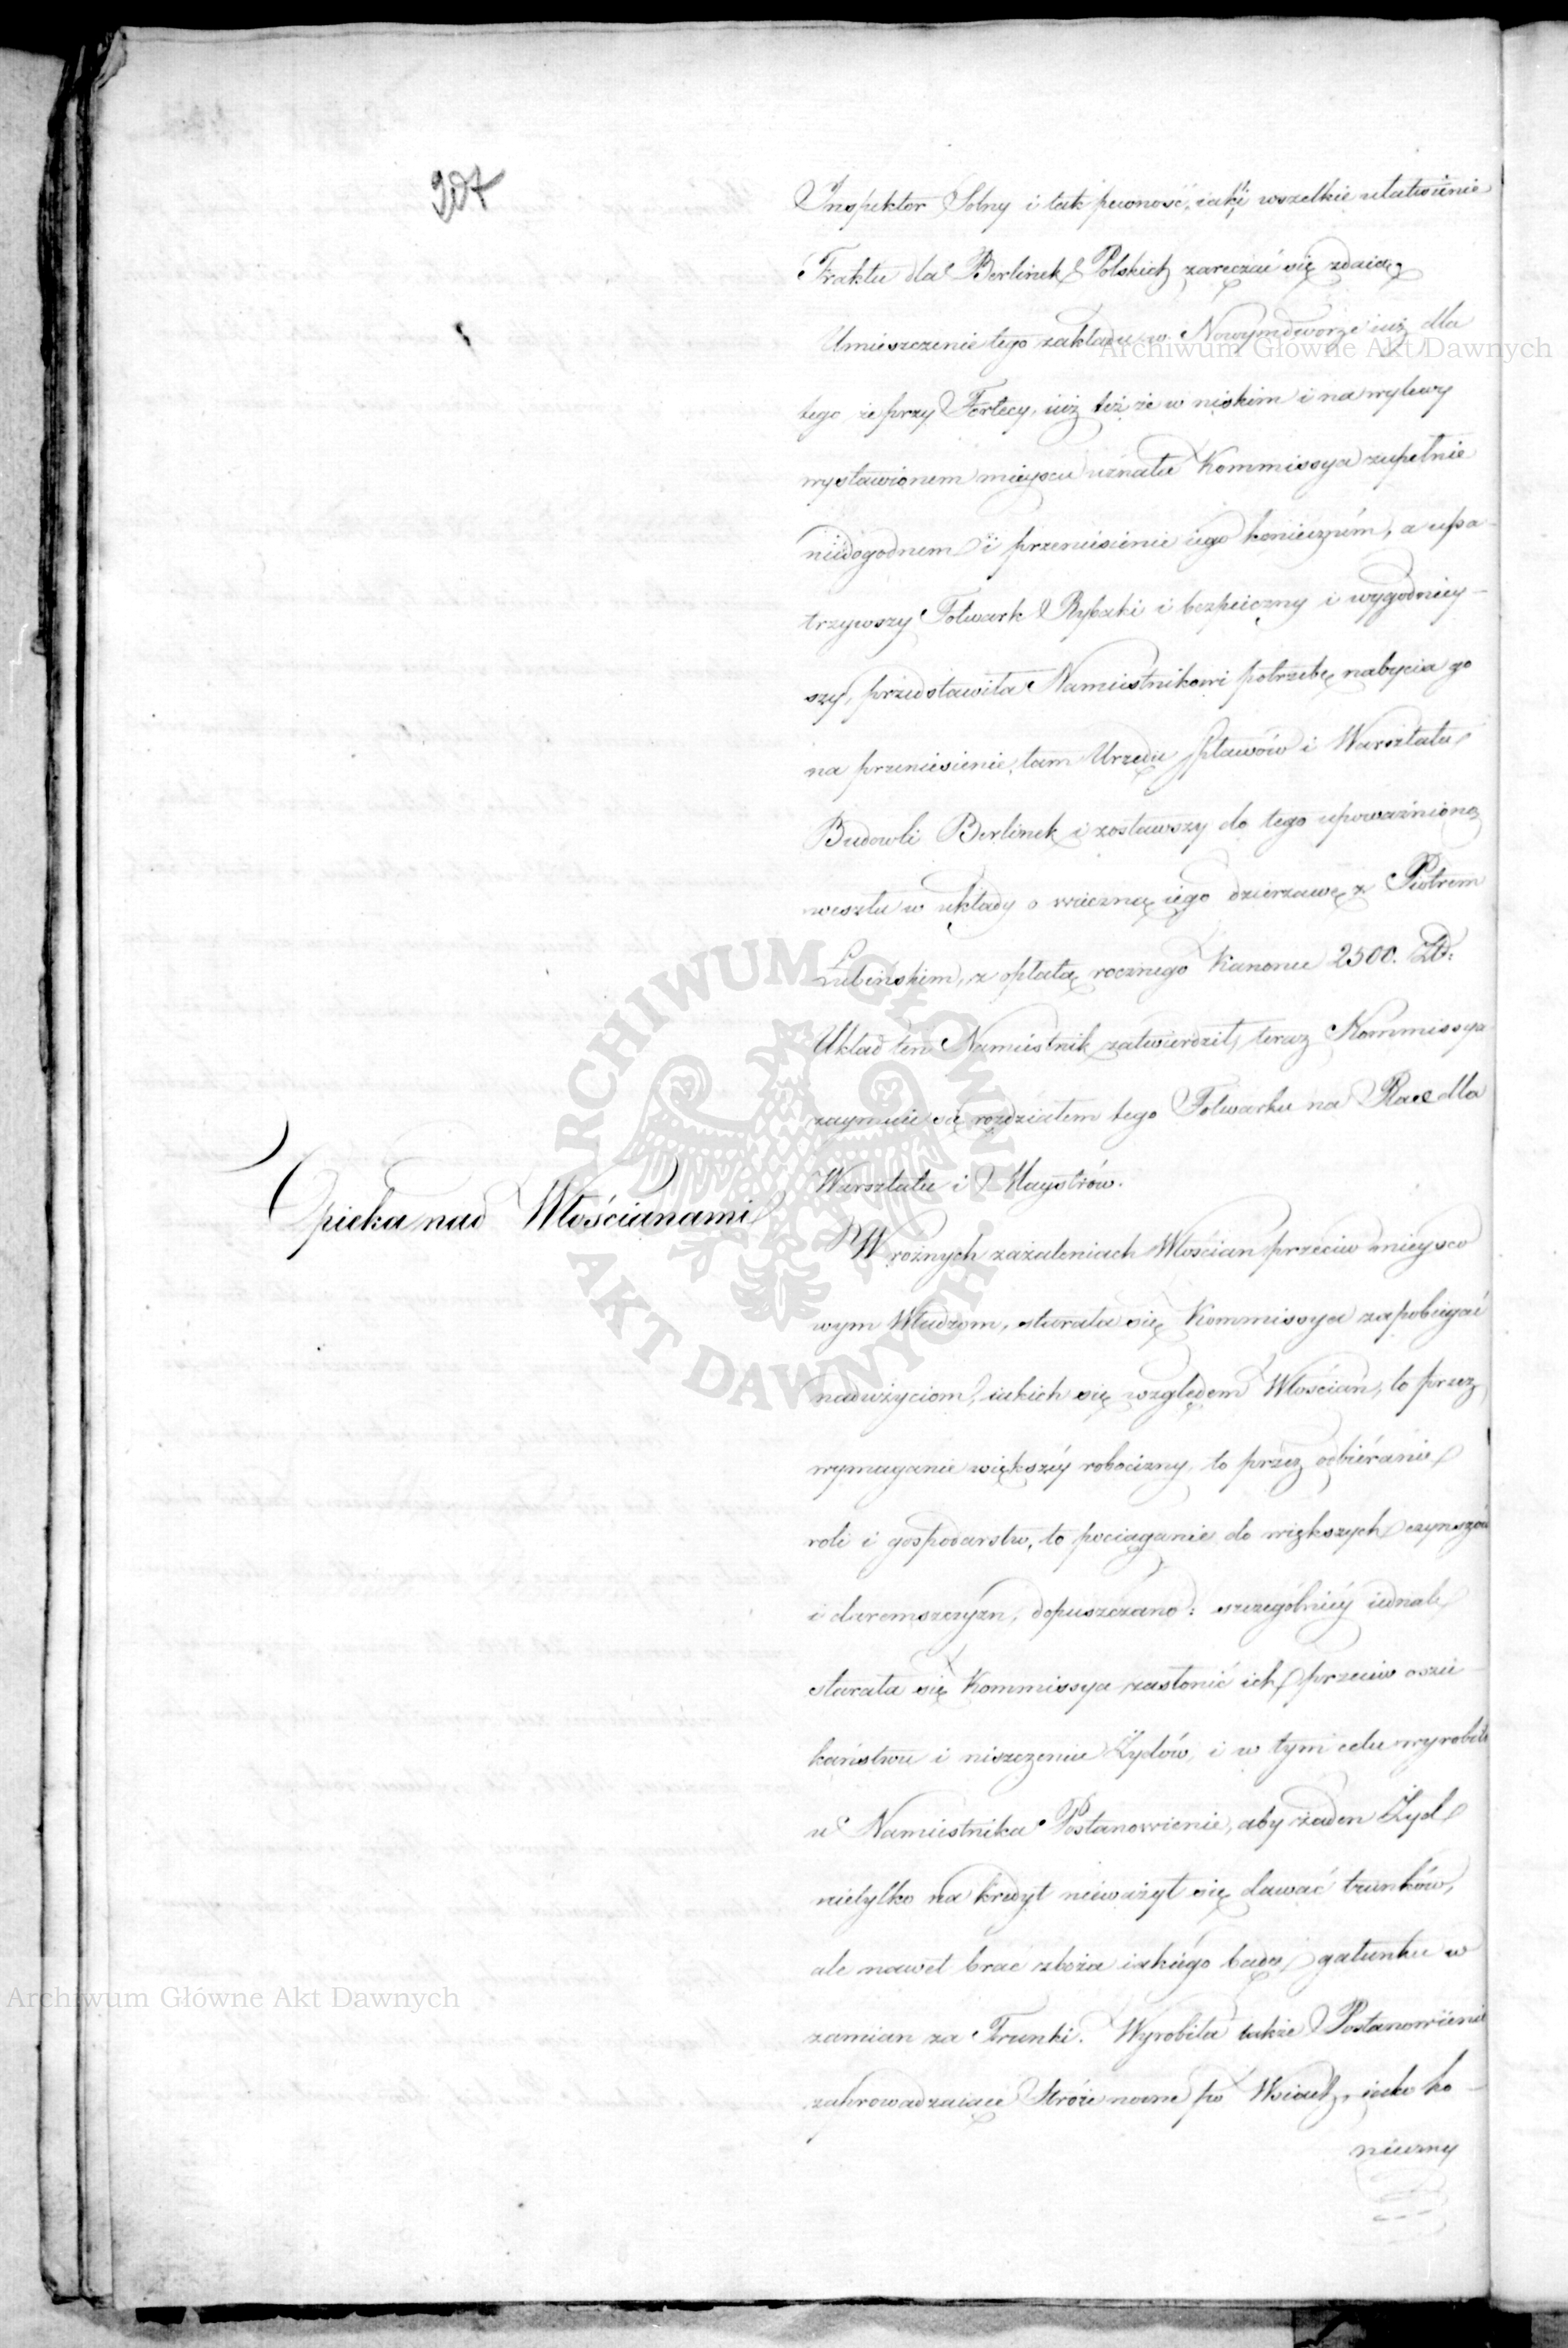 207
Inspektor Solny i tak pewność, iak i wszelkie ułatwienie
Traktu dla Berlinek Polskich zaręczać się zdaią.
Umieszczenie tego zakładu w Nowymdworze iuż dla
tego że przy Fortecy, iuż też że w niskim i na wylewy
wystawionem mieyscu uznała Kommissya zupełnie
niedogodnem i przeniesienie iego koniecznem, a upa-
trzywszy Folwark Rybaki i bezpieczny i wygodniey-
szy, przedstawiła Namiestnikowi potrzebę nabycia go
na przeniesienie tam Urzędu spławów i Warsztatu
Budowli Berlinek i zostawszy do tego upoważnioną
weszła w układy o wieczną iego dzierzawę z Piotrem
Łubińskim, z opłatą rocznego Kanonu 2500. Złt:
Układ ten Namiestnik zatwierdził, teraz Kommissya
zaymuie się rozdziałem tego Folwarku na Place dla
Warsztatu i Maystrów.
Opieka nad Włościanami
W rożnych zażaleniach Włościan przeciw mieysco
wym Władzom, starała się Kommissya zapobiegać
nadużyciom, iakich się względem Włościan, to przez
wymaganie większéy robocizny, to przez odbiéranie
roli i gospodarstw, to pociąganie do większych czynszów
i daremszczyzn, dopuszczano: szczególniéy iednak
starała się Kommissya zasłonić ich przeciw oszu-
kaństwu i niszczeniu Żydów, i w tym celu wyrobiła
u Namiestnika Postanowienie, aby żaden Żyd
nietylko na kredyt nieważył się dawać trunków,
ale nawet brać zboża iakiégo bądź gatunku w
zamian za Trunki. Wyrobiła także Postanowienie
zaprowadzaiące Stróże nocne po Wsiach, iako ko-
nieczny
Archiwum Główne Akt Dawnych
Archiwum Główne Akt Dawnych
ARCHIWUM GŁÓWNE AKT DAWNYCH